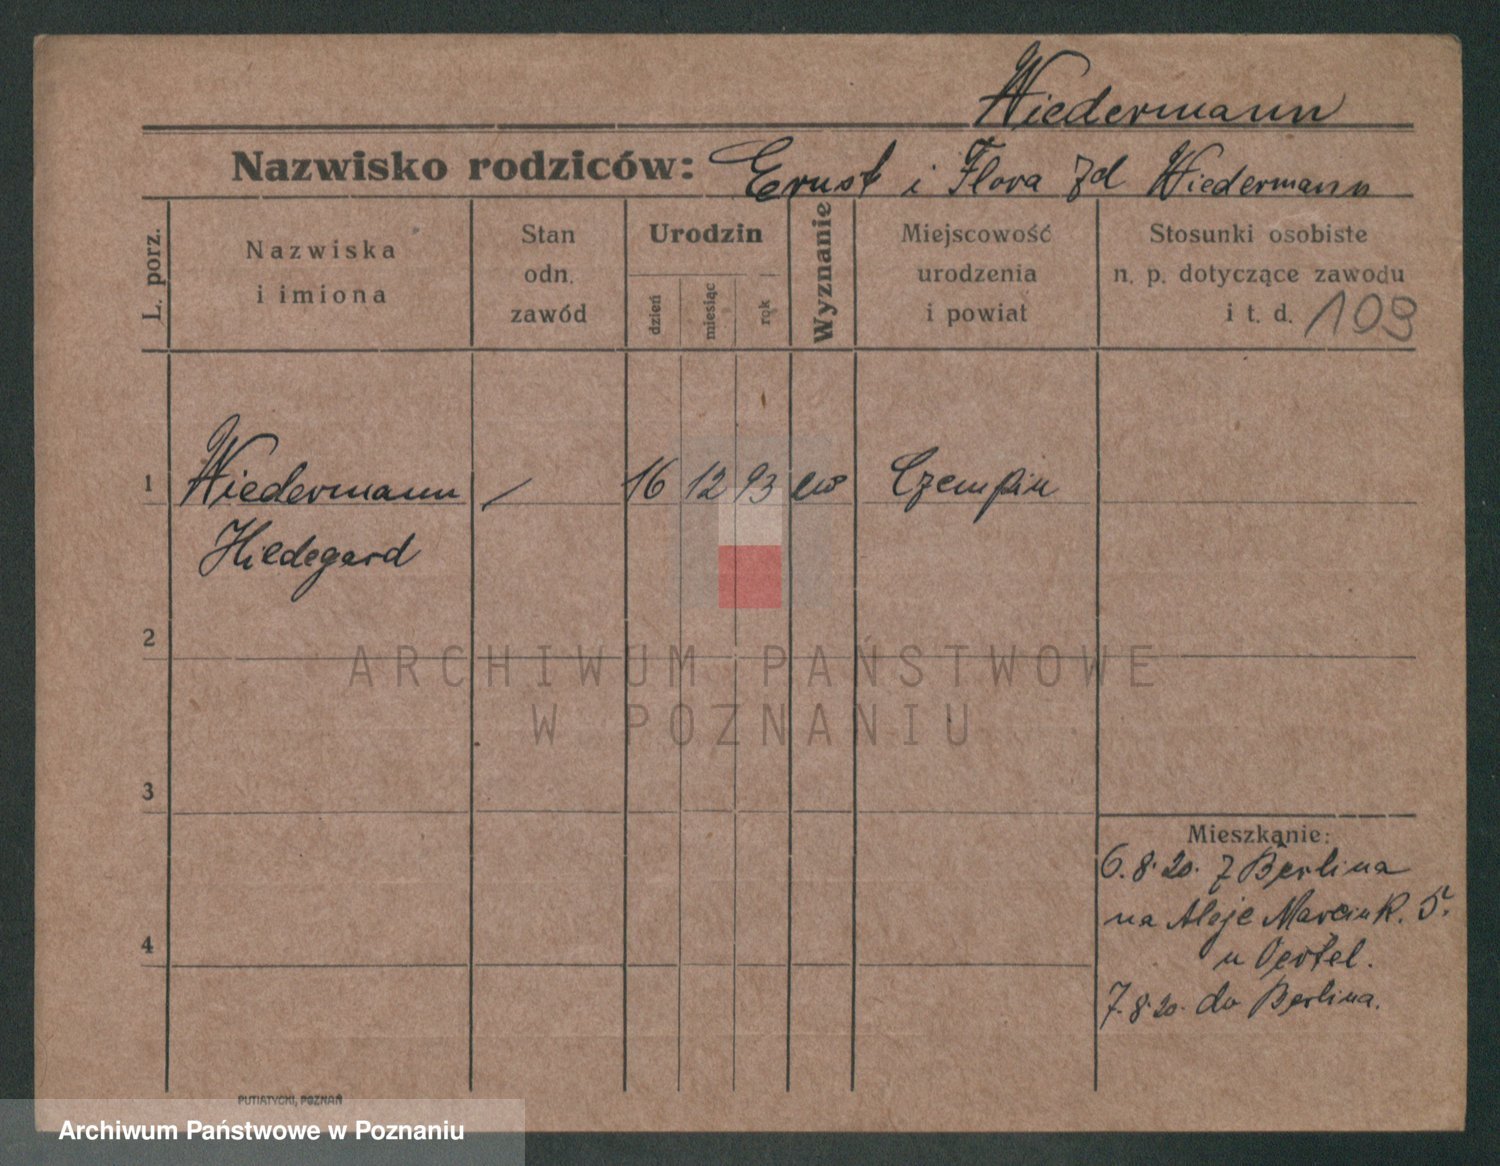 Wiedermann
Nazwisko rodziców: Ernst i Flora zd Wiedermann
L. porz.
Nazwiska
i imiona
Stan
odn.
zawód
Urodzin
dzień
miesiąc
rok
Wyznanie
Miejscowość
urodzenia
i powiat
Stosunki osobiste
n. p. dotyczące zawodu
i t. d. 109
1 Wiedermann / 16 12 93 ew Czempin
Hildegard
2
3
4
Mieszkanie:
6.8.20. z Berlina
na Aleje Marcink. 5.
u Oertel.
7.8.20. do Berlina.
PUTIATYCKI, POZNAŃ
ARCHIWUM PAŃSTWOWE
W POZNANIU
Archiwum Państwowe w Poznaniu